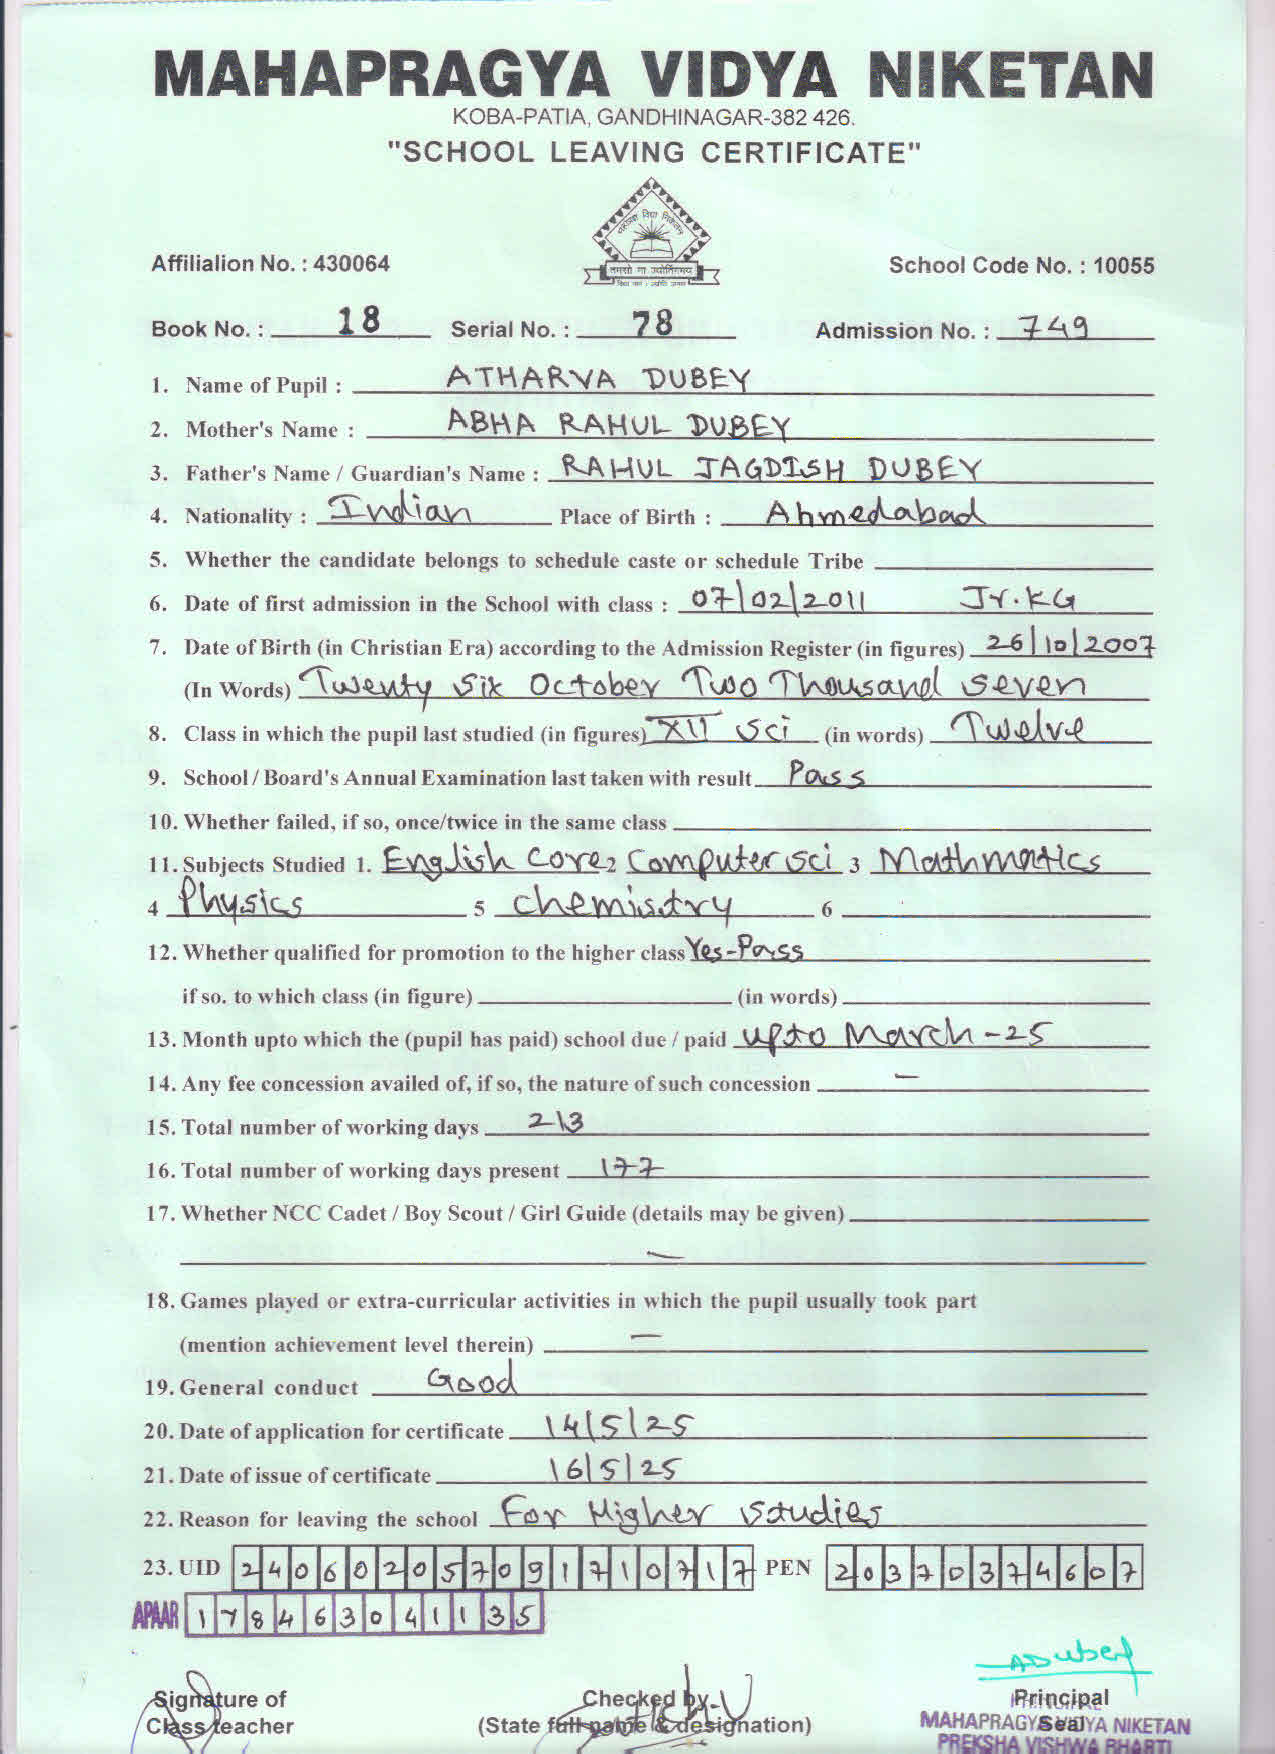 MAHAPRAGYA VIDYA NIKETAN
KOBA-PATIA, GANDHINAGAR-382 426.
"SCHOOL LEAVING CERTIFICATE"
महाप्रज्ञ विद्या निकेतन
तमसो मा ज्योतिर्गमय
Affilialion No. : 430064 School Code No. : 10055
Book No. : 18 Serial No. : 78 Admission No. : 749
1. Name of Pupil : ATHARVA DUBEY
2. Mother's Name : ABHA RAHUL DUBEY
3. Father's Name / Guardian's Name : RAHUL JAGDISH DUBEY
4. Nationality : Indian Place of Birth : Ahmedabad
5. Whether the candidate belongs to schedule caste or schedule Tribe
6. Date of first admission in the School with class : 07/02/2011 Jr.KG
7. Date of Birth (in Christian Era) according to the Admission Register (in figures) 26/10/2007
(In Words) Twenty six October Two Thousand seven
8. Class in which the pupil last studied (in figures) XII sci (in words) Twelve
9. School / Board's Annual Examination last taken with result Pass
10. Whether failed, if so, once/twice in the same class
11. Subjects Studied 1. English core 2 Computer sci 3 Mathmatics
4 Physics 5 chemistry 6
12. Whether qualified for promotion to the higher class Yes-Pass
if so. to which class (in figure) (in words)
13. Month upto which the (pupil has paid) school due / paid upto March-25
14. Any fee concession availed of, if so, the nature of such concession —
15. Total number of working days 213
16. Total number of working days present 177
17. Whether NCC Cadet / Boy Scout / Girl Guide (details may be given)
—
18. Games played or extra-curricular activities in which the pupil usually took part
(mention achievement level therein) —
19. General conduct Good
20. Date of application for certificate 14/5/25
21. Date of issue of certificate 16/5/25
22. Reason for leaving the school For Higher studies
23. UID 240602057091710717 PEN 20370374607
APAAR 178463041135
ADubey
Signature of Checked by Principal
PRINCIPAL
Class teacher (State full name & designation) Seal
MAHAPRAGYA VIDYA NIKETAN
PREKSHA VISHWA BHARTI